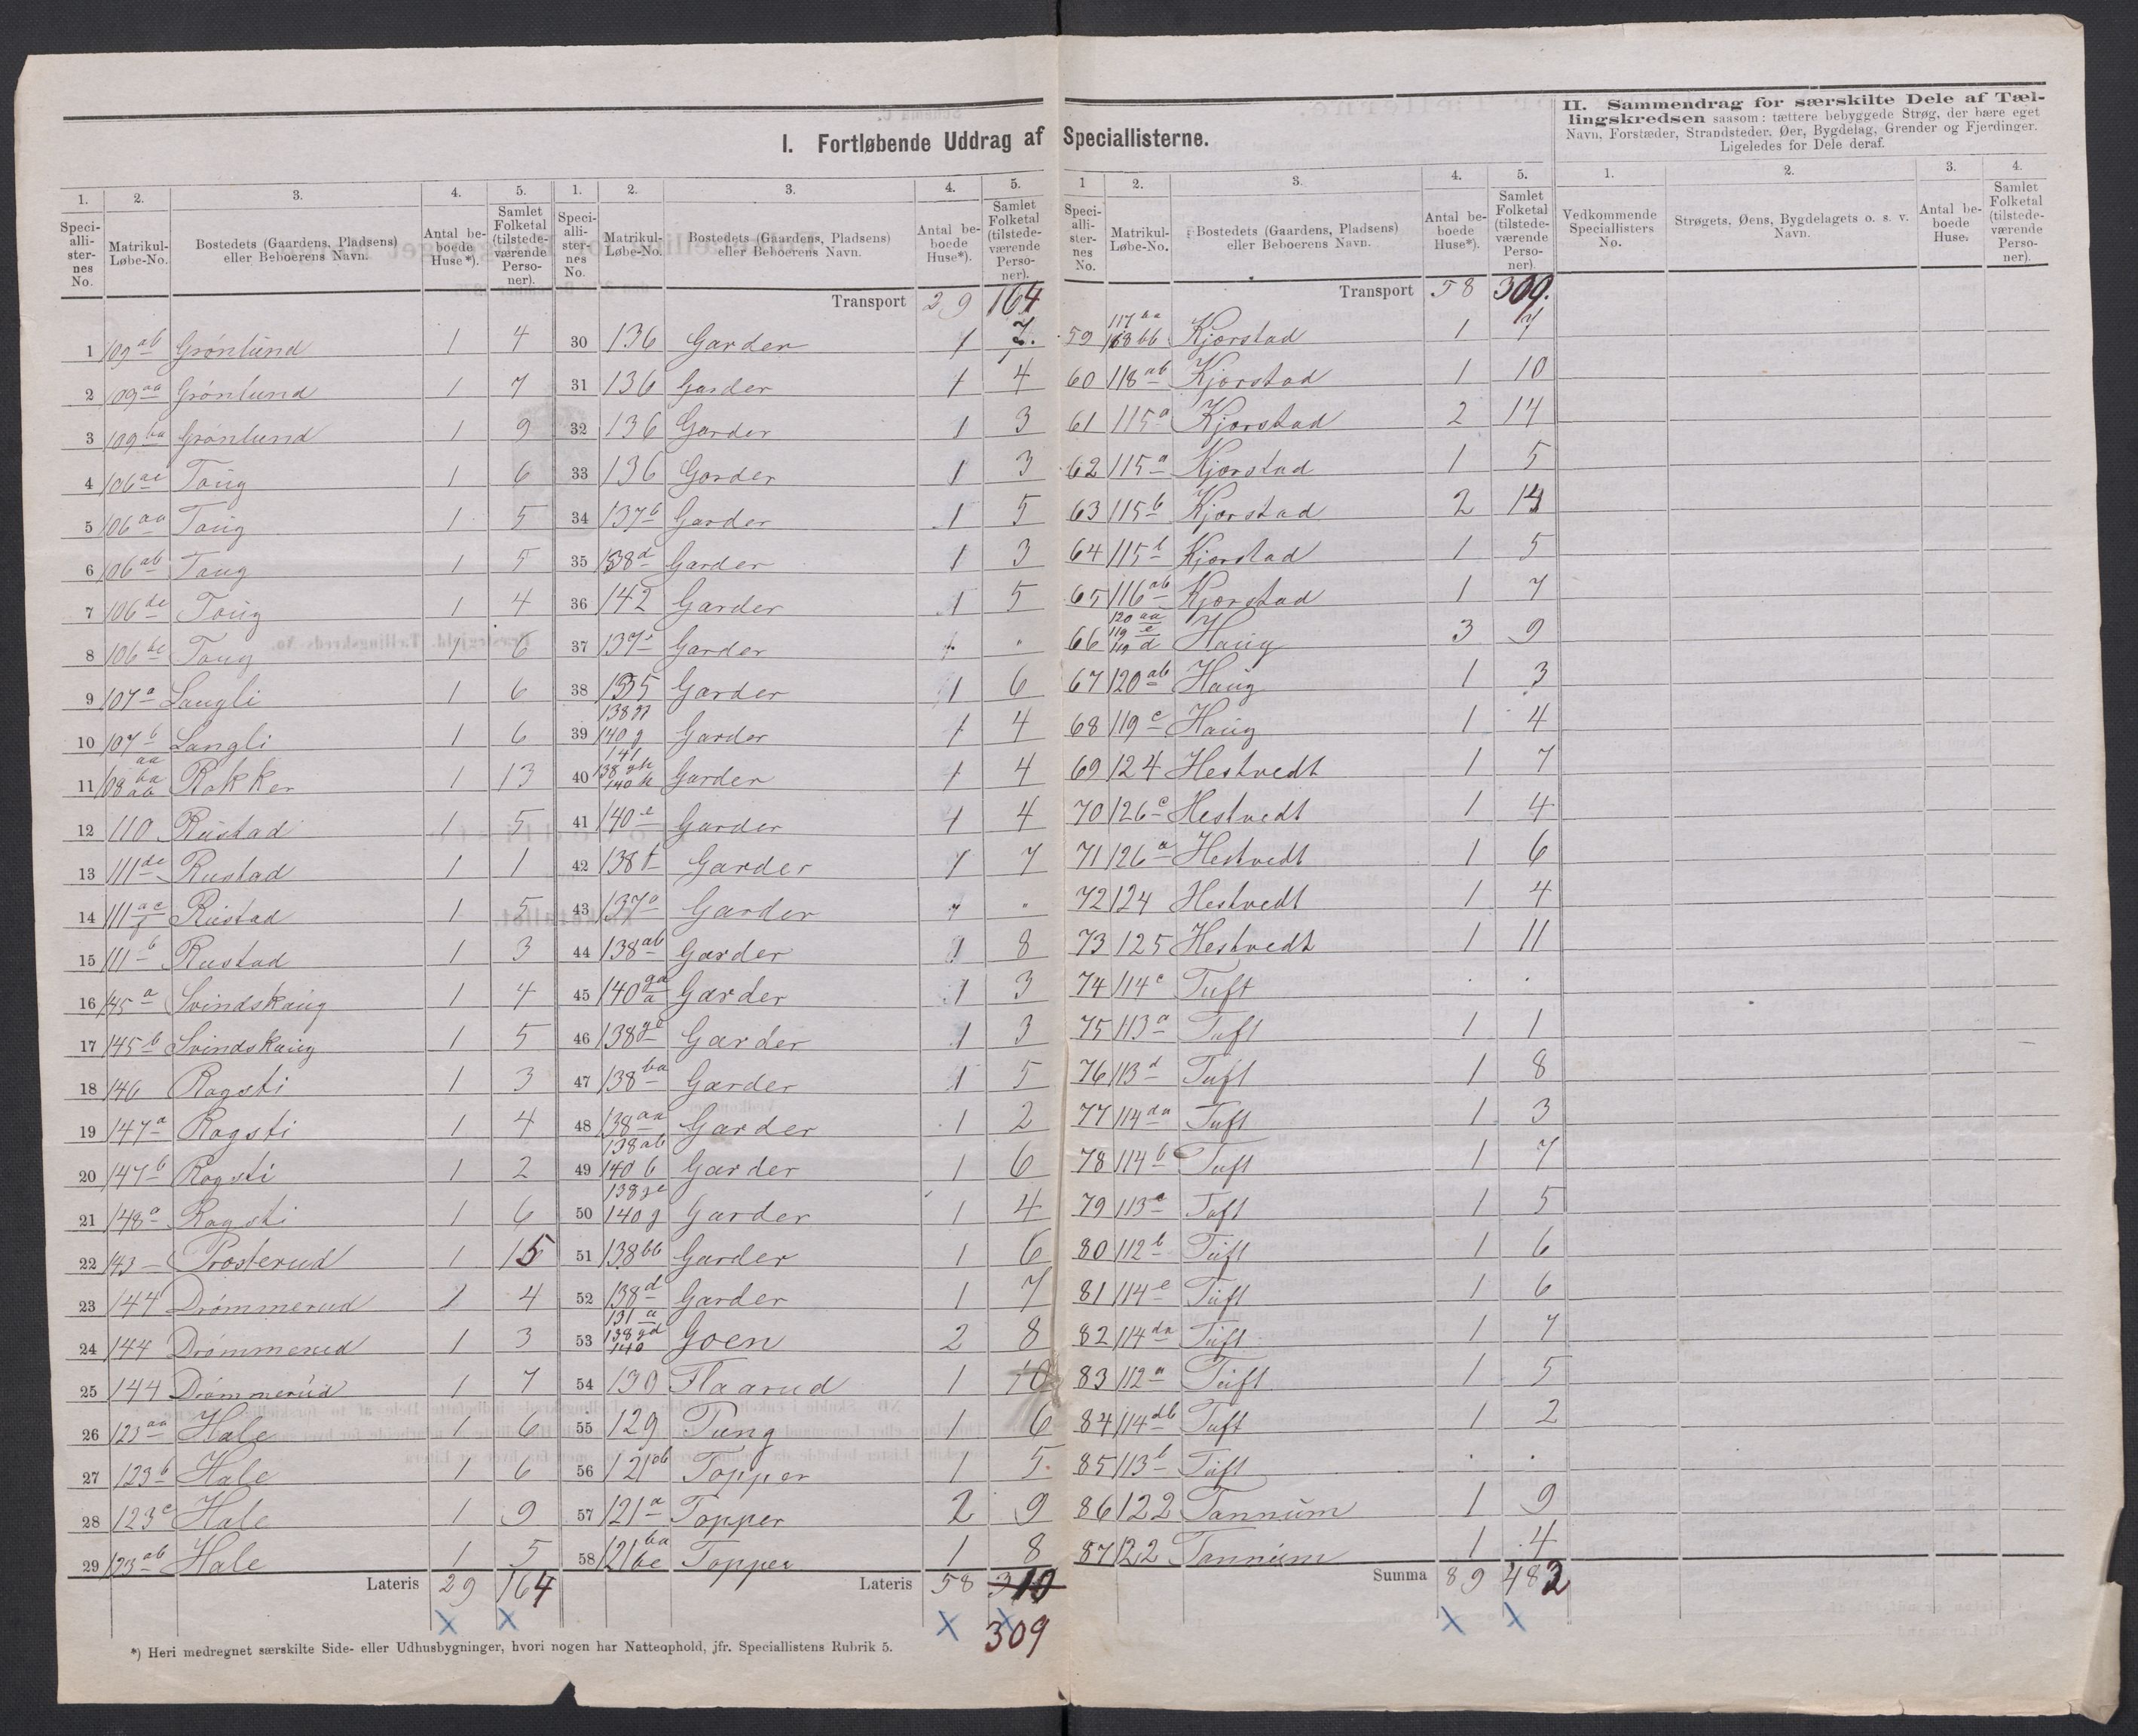 I. Fortløbende Uddrag af Speciallisterne.
II. Sammendrag for særskilte Dele af Tæl-
lingskredsen saasom: tættere bebyggede Strøg, der bære eget
Navn, Forstæder, Strandsteder, Øer, Bygdelag, Grender og Fjerdinger.
Ligeledes for Dele deraf.
1. 2. 3. 4. 5.
Speciallisternes No. Matrikul-Løbe-No. Bostedets (Gaardens, Pladsens) eller Beboerens Navn. Antal beboede Huse*). Samlet Folketal (tilstedeværende Personer).
1 109 ab Grønlund 1 4
2 109 aa Grønlund 1 7
3 109 ba Grønlund 1 9
4 106 ae Taug 1 6
5 106 aa Taug 1 5
6 106 ab Taug 1 5
7 106 de Taug 1 4
8 106 be Taug 1 6
9 107 a Langli 1 6
10 107 b Langli 1 6
11 108 aa ba ab Rakker 1 13
12 110 Rustad 1 5
13 111 de Rustad 1 1
14 111 ac f Rustad 1 5
15 111 b Rustad 1 3
16 145 a Svindskaug 1 4
17 145 b Svindskaug 1 5
18 146 Ragsti 1 3
19 147 a Ragsti 1 4
20 147 b Ragsti 1 2
21 148 a Ragsti 1 6
22 143 Prosterud 1 15
23 144 Drømmerud 1 4
24 144 Drømmerud 1 3
25 144 Drømmerud 1 7
26 123 aa Hale 1 6
27 123 b Hale 1 6
28 123 c Hale 1 9
29 123 ab Hale 1 5
Lateris 29 164
1. 2. 3. 4. 5.
Speciallisternes No. Matrikul-Løbe-No. Bostedets (Gaardens, Pladsens) eller Beboerens Navn. Antal beboede Huse*). Samlet Folketal (tilstedeværende Personer).
Transport 29 164
30 136 Garder 1 7
31 136 Garder 1 4
32 136 Garder 1 3
33 136 Garder 1 3
34 137 b Garder 1 5
35 138 d Garder 1 3
36 142 Garder 1 5
37 Garder
38 135 Garder 1 6
39 140 g Garder 1 4
40 141 138 gh 140 h Garder 1 4
41 140 e Garder 1 4
42 138 f Garder 1 7
43 137 a Garder
44 138 ab Garder 1 8
45 140 ga a Garder 1 3
46 138 ge Garder 1 3
47 138 ba Garder 1 5
48 138 aa Garder 1 2
49 138 ab 140 b Garder 1 6
50 138 ge 140 g Garder 1 4
51 138 bb Garder 1 6
52 138 d Garder 1 7
53 131 a 138 gd 140 Goen 2 8
54 139 Flaarud 1 10
55 129 Pung 1 6
56 121 ab Topper 1 5
57 121 a Topper 2 9
58 121 ba be Topper 1 8
Lateris 58 310
309
1 2. 3. 4. 5.
Speciallisternes No. Matrikul-Løbe-No. Bostedets (Gaardens, Pladsens) eller Beboerens Navn. Antal beboede Huse*). Samlet Folketal (tilstedeværende Personer)
Transport 58 309.
59 117 aa 118 bb Kjorstad 1 7
60 118 ab Kjorstad 1 10
61 115 a Kjorstad 2 14
62 115 a Kjorstad 1 5
63 115 b Kjorstad 2
64 115 b Kjorstad 1 5
65 116 ab Kjorstad 1 7
66 120 aa 119 e 119 d Haug 3 9
67 120 ab Haug 1 3
68 119 c Haug 1 4
69 124 Hestvedt 1 7
70 126 c Hestvedt 1 4
71 126 a Hestvedt 1 6
72 124 Hestvedt 1 4
73 125 Hestvedt 1 11
74 114 c Tuft . .
75 113 a Tuft 1 1
76 113 d Tuft 1 8
77 114 da Tuft 1 3
78 114 b Tuft 1 7
79 113 c Tuft 1 5
80 112 b Tuft 1 6
81 114 e Tuft 1 6
82 114 da Tuft 1 7
83 112 a Tuft 1 5
84 114 db Tuft 1 2
85 113 b Tuft . .
86 122 Tannum 1 9
87 122 Tannum 1 4
Summa 89 482
1. 2. 3. 4.
Vedkommende Speciallisters No. Strøgets, Øens, Bygdelagets o. s. v. Navn. Antal beboede Huse. Samlet Folketal (tilstedeværende Personer).
*) Heri medregnet særskilte Side- eller Udhusbygninger, hvori nogen har Natteophold, jfr. Speciallistens Rubrik 5.